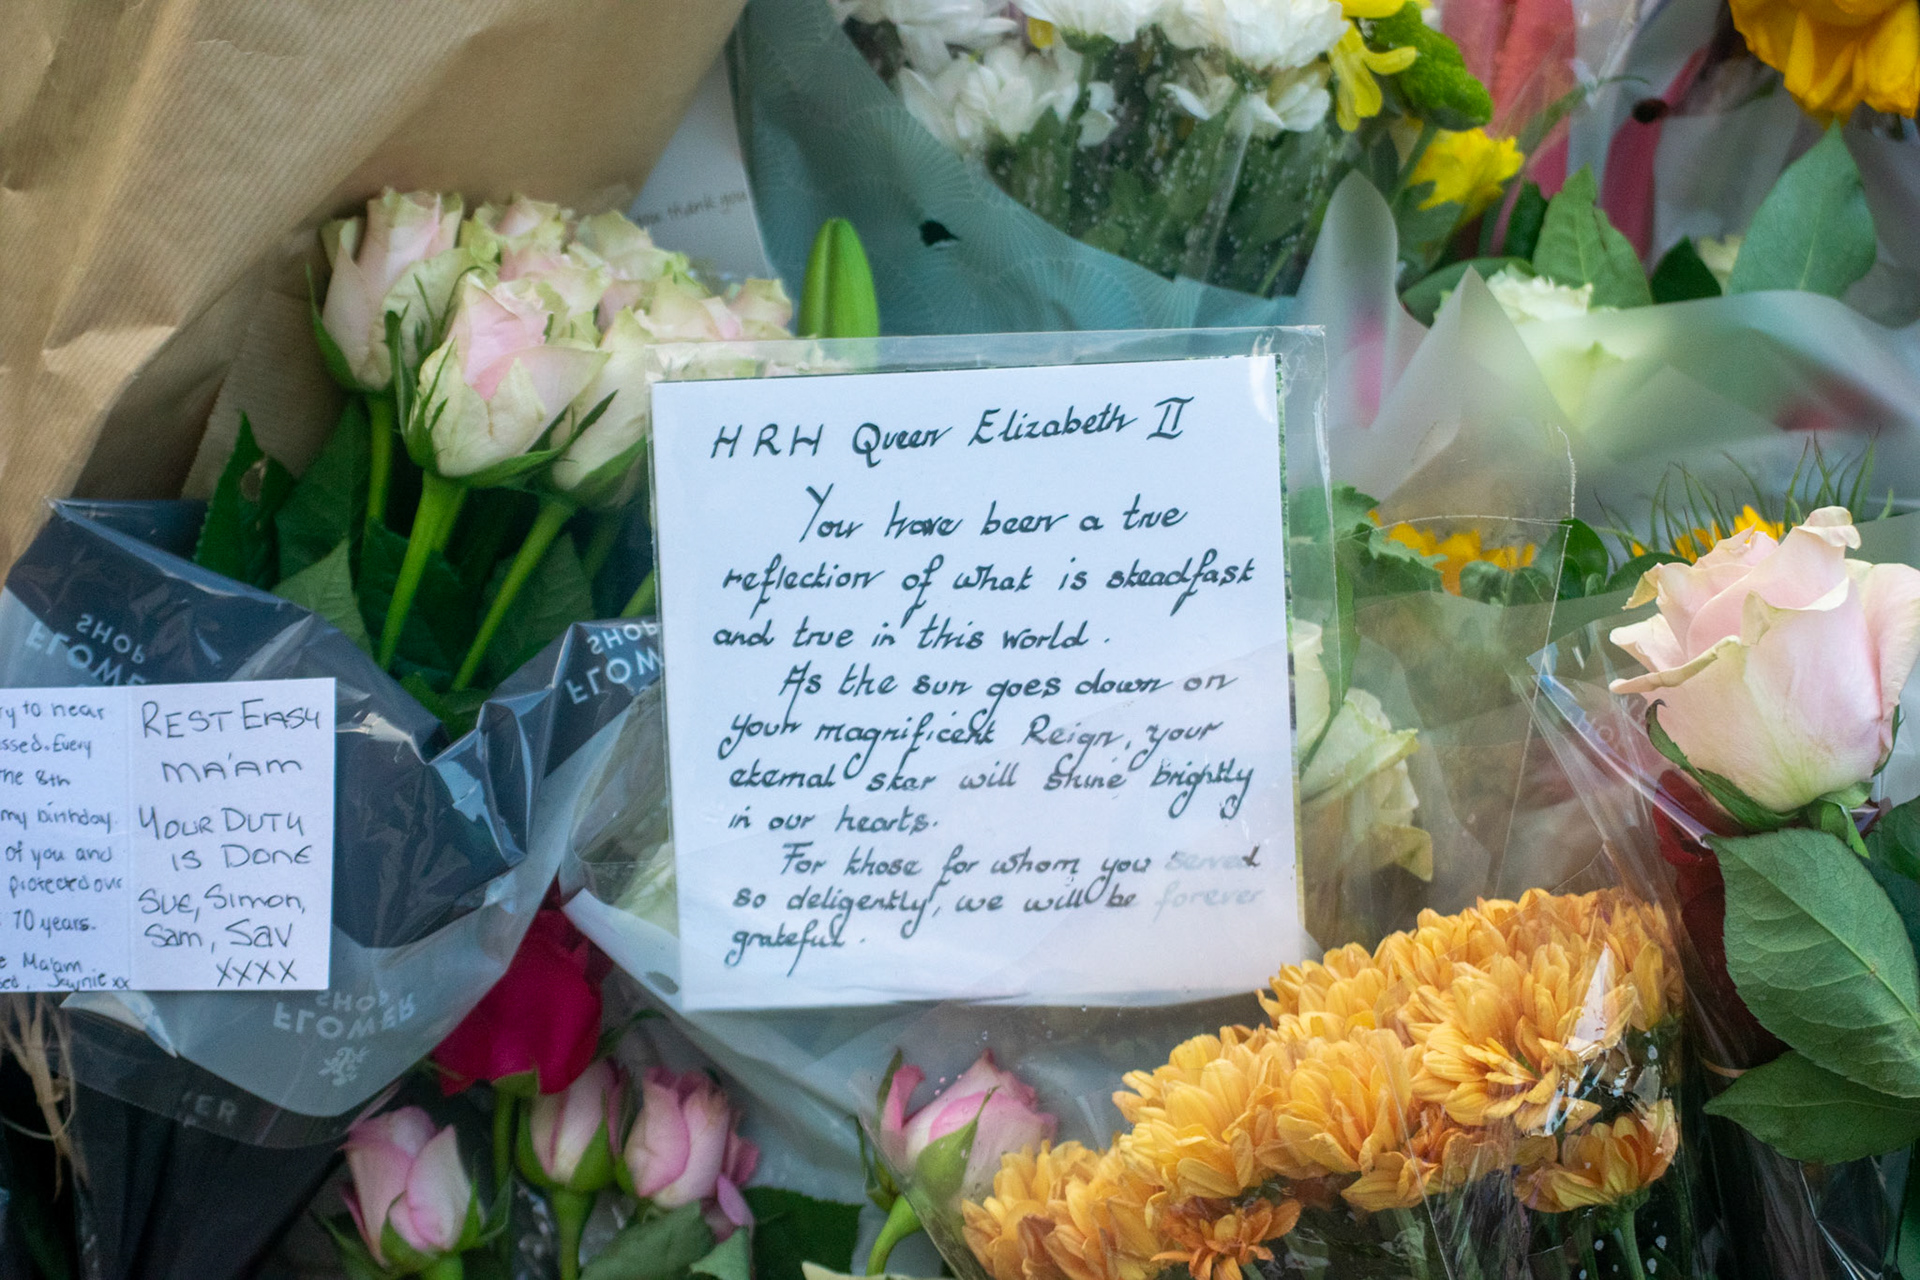 you thank you
HRH Queen Elizabeth II
You have been a true
reflection of what is steadfast
and true in this world.
As the sun goes down on
your magnificent Reign, your
eternal star will shine brightly
in our hearts.
For those for whom you served
so deligently, we will be forever
grateful.
SHOP
FLOWER
SHOP
FLOW
to hear
Every
8th
my birthday.
of you and
protected our
70 years.
Ma'am
Jaynie xx
REST EASY
MA'AM
YOUR DUTY
IS DONE
SUE, Simon,
Sam, Sav
XXXX
SHOP
FLOWER